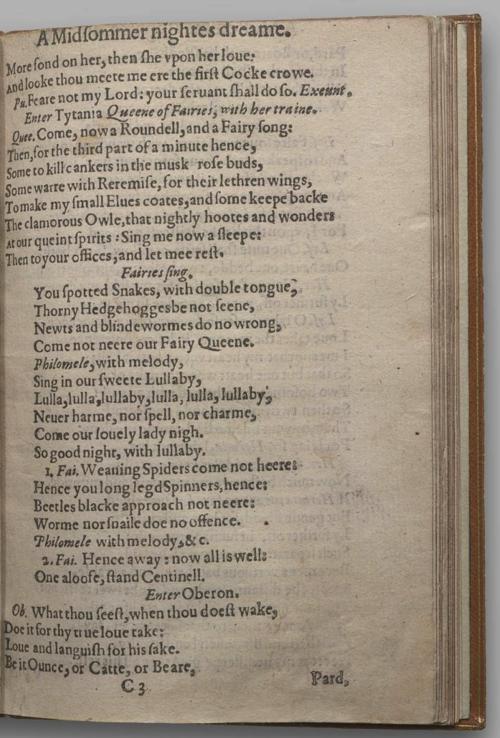 A Midsommer nightes dreame.
More fond on her, then she vpon her loue:
And looke thou meete me ere the first Cocke crowe.
Pu. Feare not my Lord: your seruant shall do so. Exeunt.
Enter Tytania Queene of Fairies, with her traine.
Quee. Come, now a Roundell, and a Fairy song:
Then, for the third part of a minute hence,
Some to kill cankers in the musk rose buds,
Some warre with Reremise, for their lethren wings,
To make my small Elues coates, and some keepe backe
The clamorous Owle, that nightly hootes and wonders
At our queint spirits: Sing me now a sleepe:
Then to your offices, and let mee rest.
Fairies sing.
You spotted Snakes, with double tongue,
Thorny Hedgehogges be not seene,
Newts and blindewormes do no wrong,
Come not neere our Fairy Queene.
Philomele, with melody,
Sing in our sweete Lullaby,
Lulla, lulla, lullaby, lulla, lulla, lullaby,
Neuer harme, nor spell, nor charme,
Come our louely lady nigh.
So good night, with lullaby.
1. Fai. Weauing Spiders come not heere:
Hence you long legd Spinners, hence:
Beetles blacke approach not neere:
Worme nor snaile doe no offence.
Philomele with melody, & c.
2. Fai. Hence away: now all is well:
One aloofe, stand Centinell.
Enter Oberon.
Ob. What thou seest, when thou doest wake,
Doe it for thy true loue take:
Loue and languish for his sake.
Be it Ounce, or Catte, or Beare,
C 3 Pard,